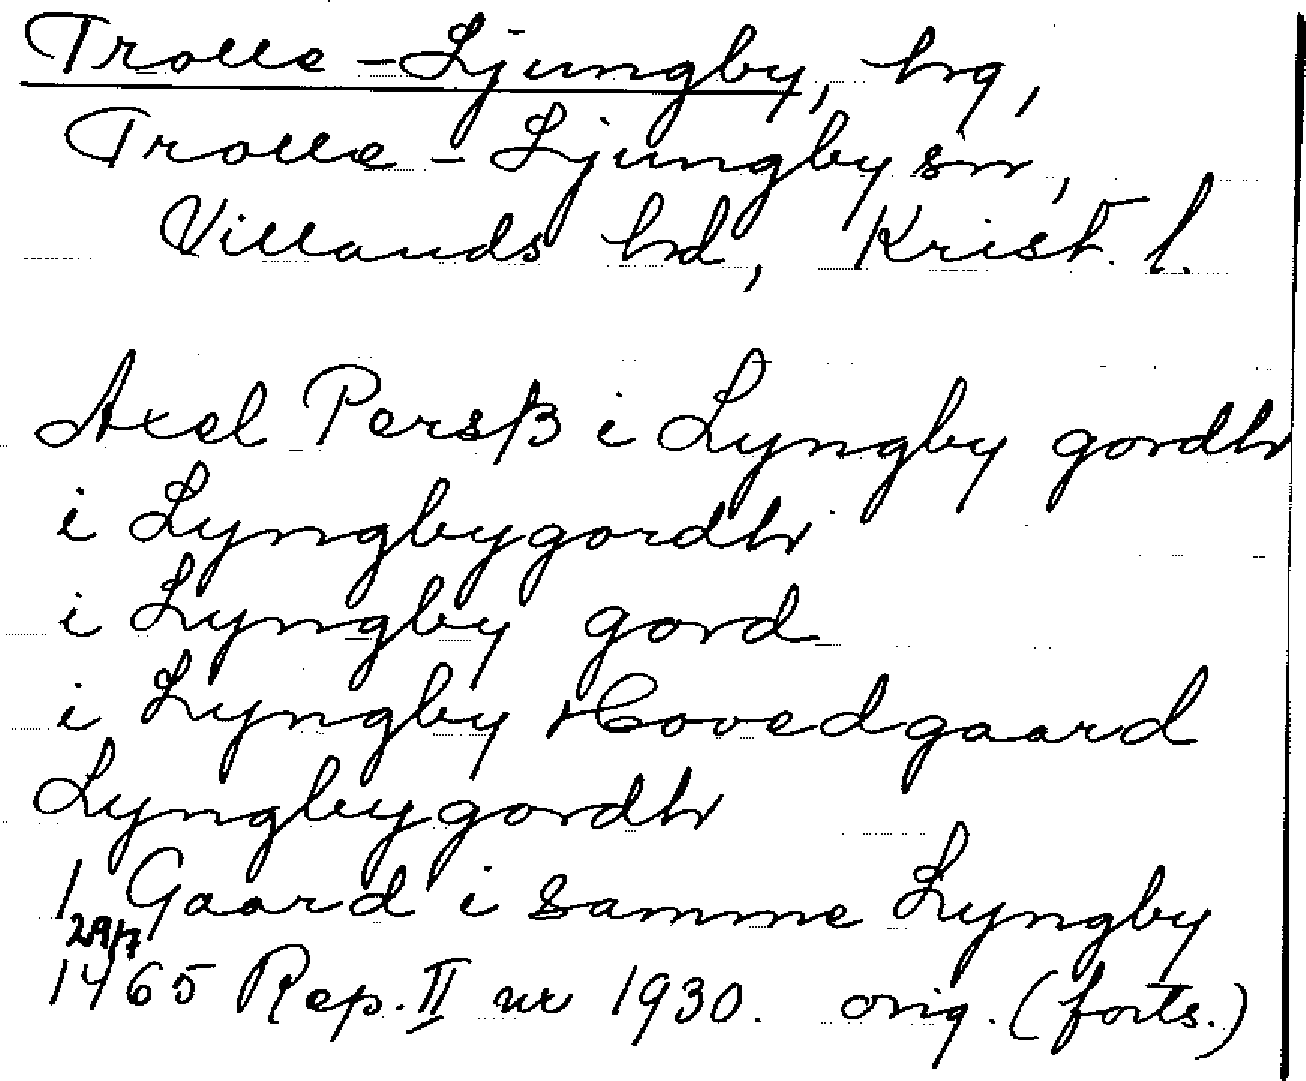 Trolle-Ljungby, hrg,
Trolle-Ljungby sn,
Villands hd, Krist. l.
Axel Persß i Lyngby gordh
i Lyngbygordh
i Lyngby gord
i Lyngby Hovedgaard
Lyngbygordh
1 Gaard i samme Lyngby
29/7
1465 Rep. II nr 1930. orig. (forts.)